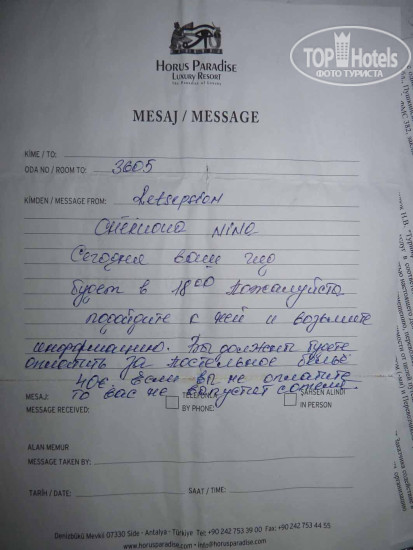 TOPHotels
ФОТО ТУРИСТА
HORUS PARADISE
LUXURY RESORT
MESAJ / MESSAGE
KİME / TO:
ODA NO / ROOM TO: 3605
KİMDEN / MESSAGE FROM: Letseption
NINA
Сегодня ваш гид
будет в 18 00 пожалуйста
подойдите к ней и возьмите
информацию. Вы должны будете
оплатить за постельное бельё
40€. если вы не оплатите
MESAJ: то вас не выпустят с отеля
MESSAGE RECEIVED: TELEFON BY PHONE: ŞAHSEN ALINDI IN PERSON
ALAN MEMUR
MESSAGE TAKEN BY:
TARİH / DATE: SAAT / TIME:
Denizbükü Mevkii 07330 Side - Antalya - Türkiye Tel: +90 242 753 39 00 Fax: +90 242 753 44 55
www.horusparadise.com • info@horusparadise.com